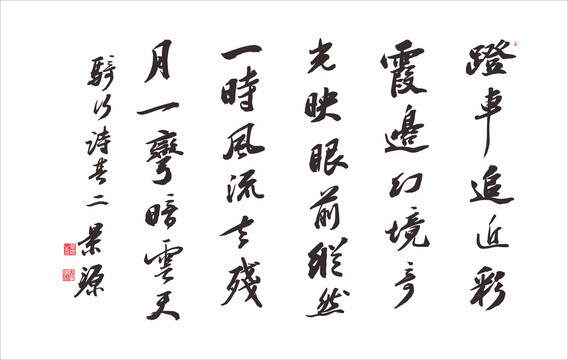 蹬車追近彩
霞邊幻境奇
光映眼前縱然
一時風流去殘
月一彎暗雲天
騎行詩其二 景源